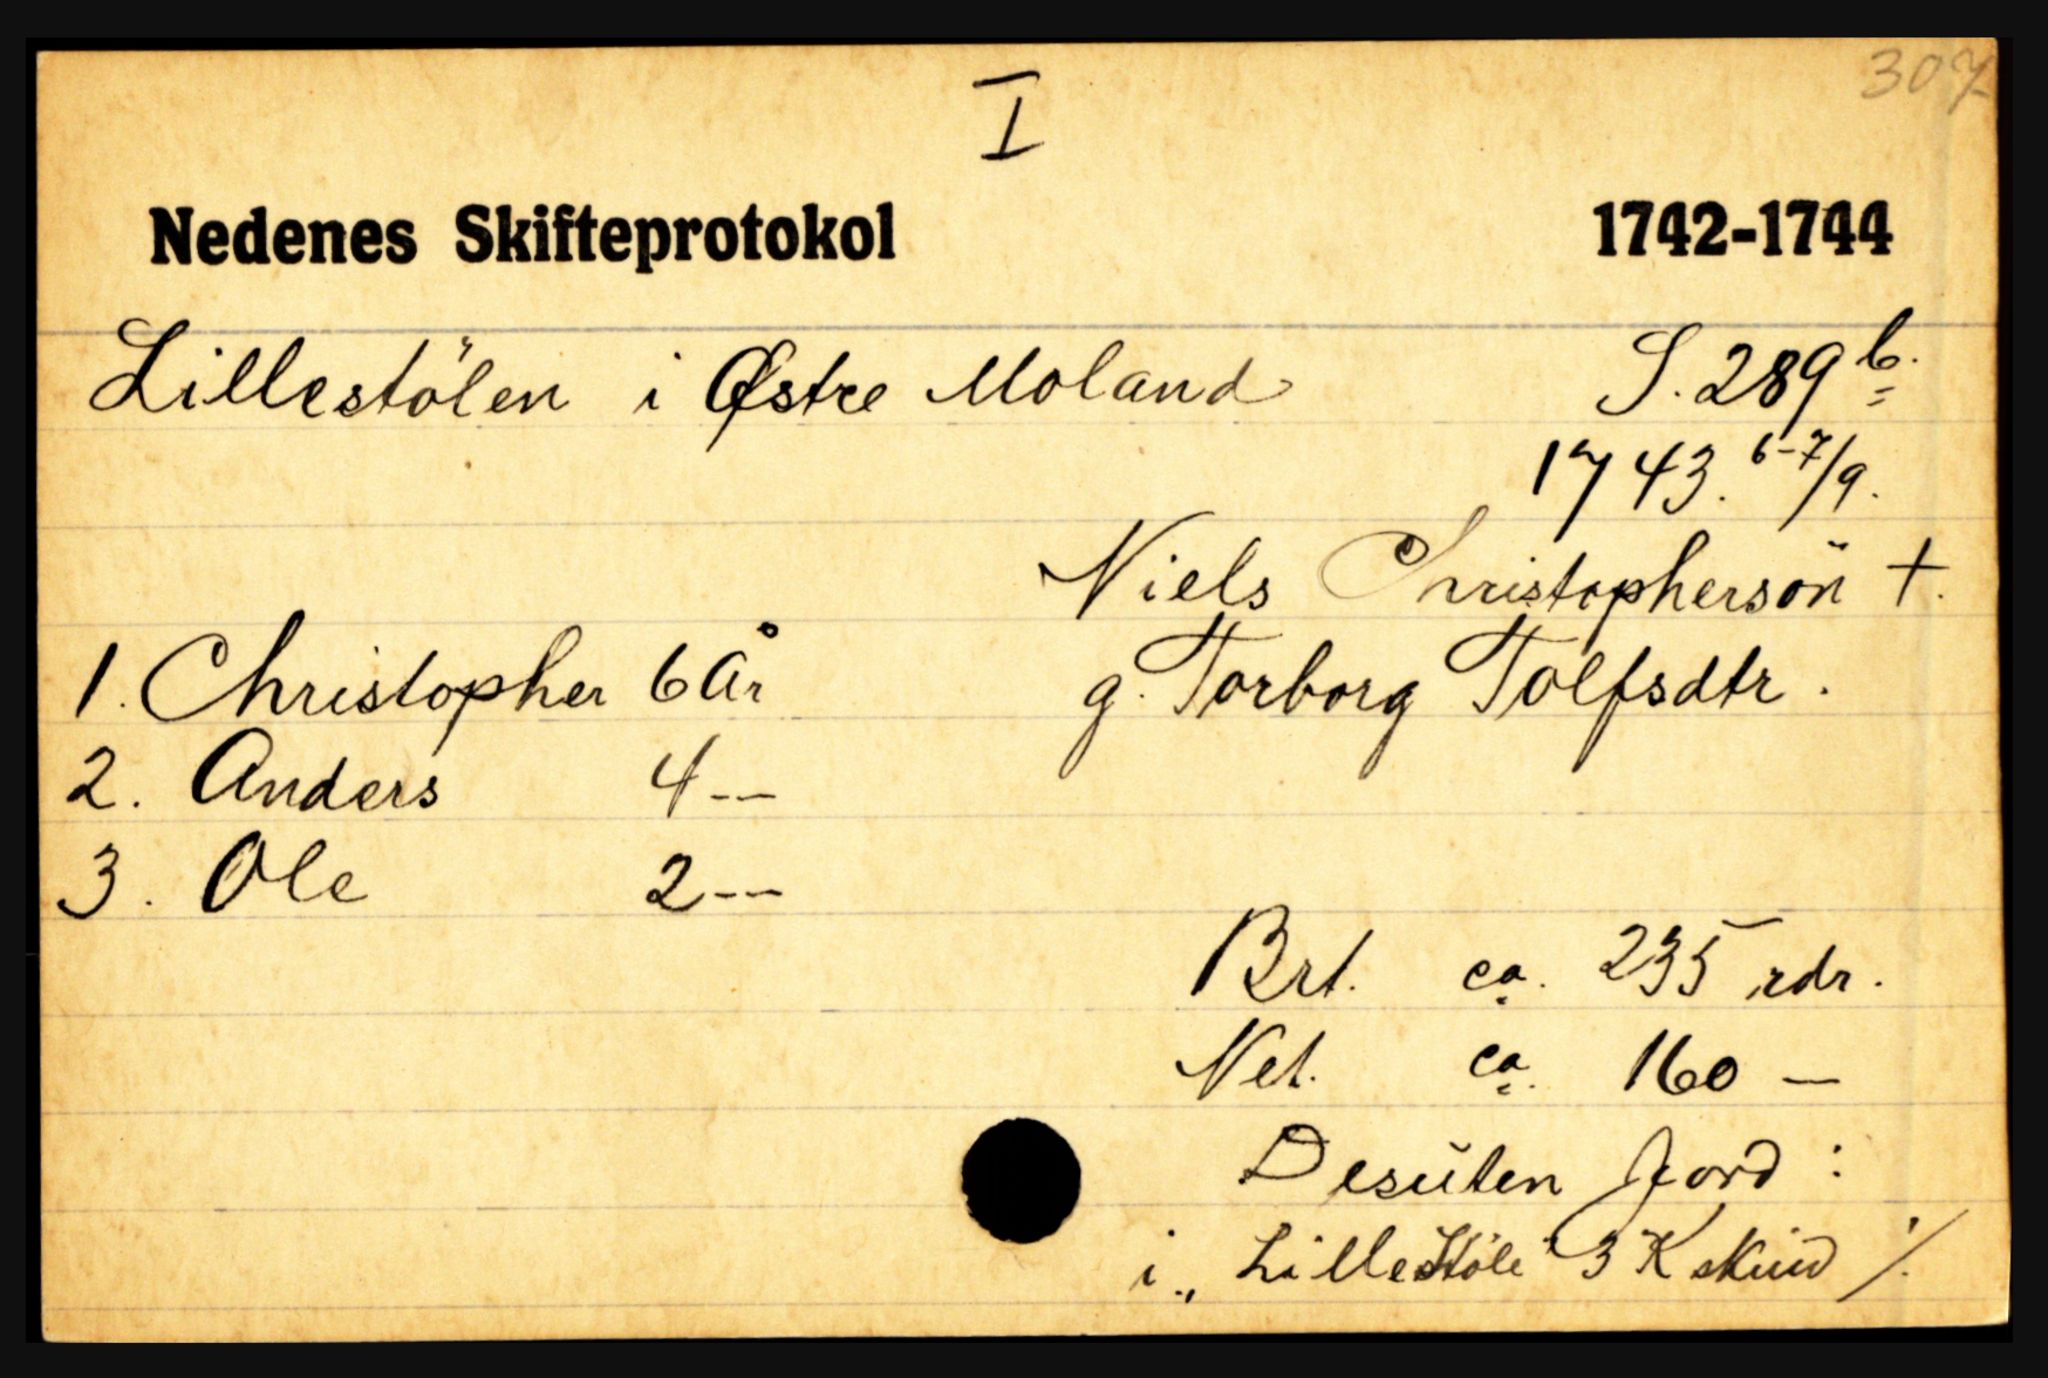 307
I
Nedenes Skifteprotokol 1742-1744
Lillestölen i Østre Moland S. 289 b.
1743. 6-7/9.
Niels Christophersön +.
1. Christopher 6 År g. Torborg Tolfsdtr.
2. Anders 4 --
3. Ole 2 --
Brt. ca. 235 rdr.
Net. ca. 160 —
Desuten Jord :
i „Lillestöle" 3 K skind ./.